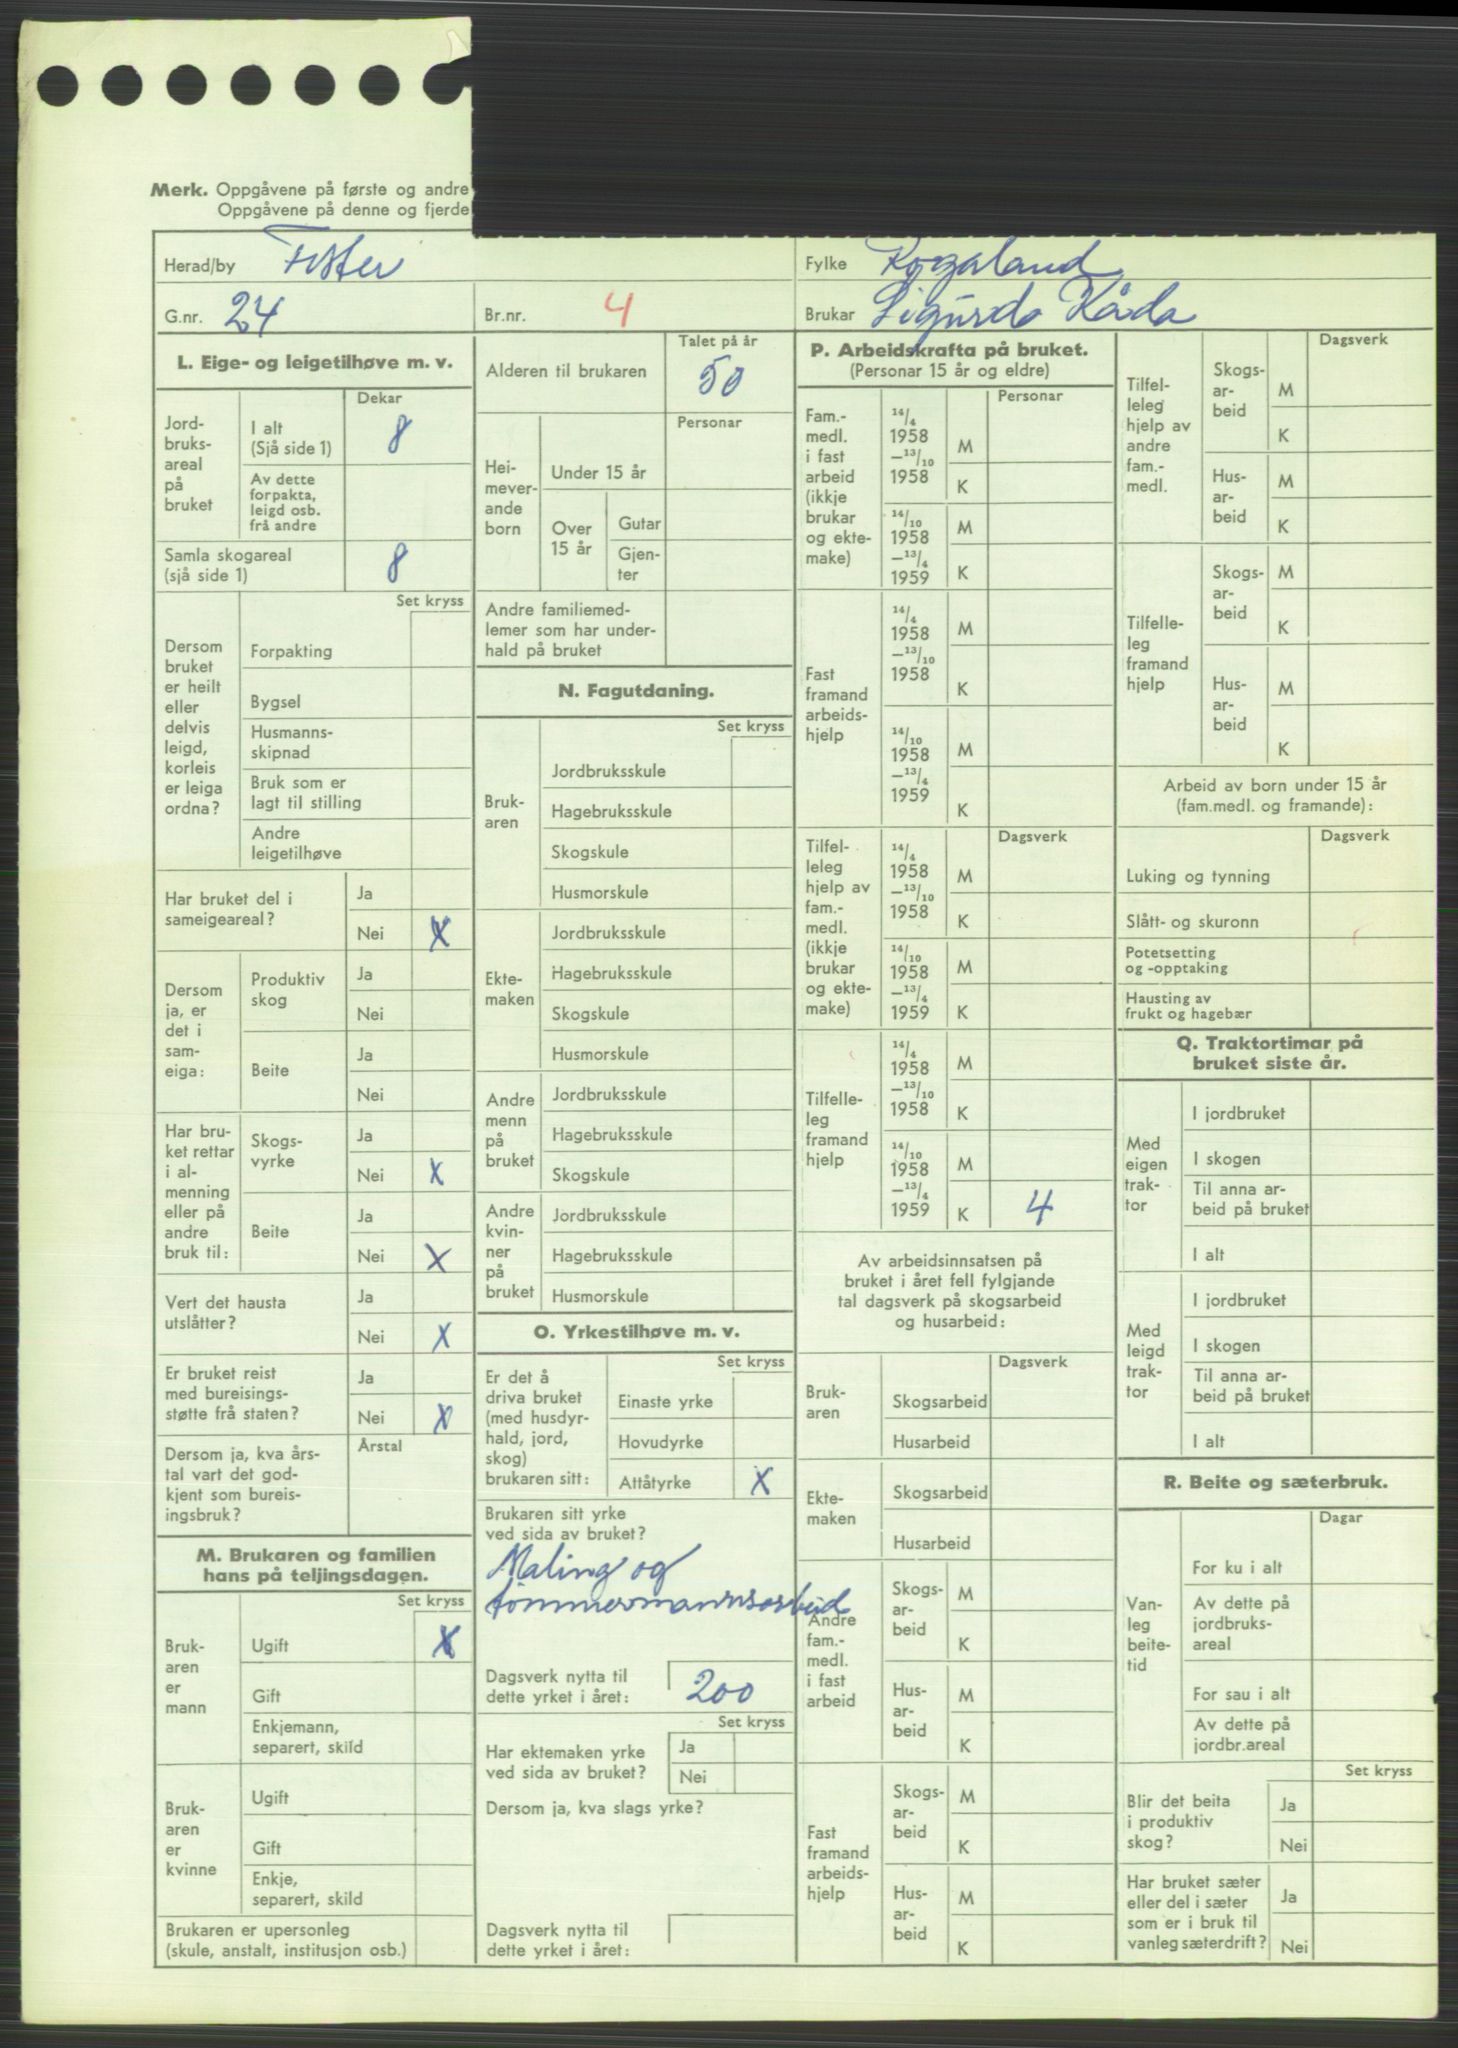 Merk. Oppgåvene på første og andre
Oppgåvene på denne og fjerde
Herad/by Fister
Fylke Rogaland
G.nr. 24
Br.nr. 4
Brukar Sigurd Kåda
L. Eige- og leigetilhøve m. v.
Dekar
Jord-
bruks-
areal
på
bruket
I alt
(Sjå side 1) 8
Av dette
forpakta,
leigd osb.
frå andre
Samla skogareal
(sjå side 1) 8
Set kryss
Dersom
bruket
er heilt
eller
delvis
leigd,
korleis
er leiga
ordna?
Forpakting
Bygsel
Husmanns-
skipnad
Bruk som er
lagt til stilling
Andre
leigetilhøve
Har bruket del i
sameigeareal?
Ja
Nei X
Dersom
ja, er
det i
sam-
eiga:
Produktiv
skog
Ja
Nei
Beite
Ja
Nei
Har bru-
ket rettar
i al-
menning
eller på
andre
bruk til:
Skogs-
vyrke
Ja
Nei X
Beite
Ja
Nei X
Vert det hausta
utslåtter?
Ja
Nei X
Er bruket reist
med bureisings-
støtte frå staten?
Ja
Nei X
Dersom ja, kva års-
tal vart det god-
kjent som bureis-
ingsbruk?
Årstal
M. Brukaren og familien
hans på teljingsdagen.
Set kryss
Bruk-
aren
er
mann
Ugift X
Gift
Enkjemann,
separert, skild
Bruk-
aren
er
kvinne
Ugift
Gift
Enkje,
separert, skild
Brukaren er upersonleg
(skule, anstalt, institusjon osb.)
Talet på år
Alderen til brukaren 50
Personar
Hei-
mever-
ande
born
Under 15 år
Over
15 år
Gutar
Gjen-
ter
Andre familiemed-
lemer som har under-
hald på bruket
N. Fagutdaning.
Set kryss
Bruk-
aren
Jordbruksskule
Hagebruksskule
Skogskule
Husmorskule
Ekte-
maken
Jordbruksskule
Hagebruksskule
Skogskule
Husmorskule
Andre
menn
på
bruket
Jordbruksskule
Hagebruksskule
Skogskule
Andre
kvin-
ner
på
bruket
Jordbruksskule
Hagebruksskule
Husmorskule
O. Yrkestilhøve m. v.
Set kryss
Er det å
driva bruket
(med husdyr-
hald, jord,
skog)
brukaren sitt:
Einaste yrke
Hovudyrke
Attåtyrke X
Brukaren sitt yrke
ved sida av bruket?
Maling og
tømmermannsarbeid
Dagsverk nytta til
dette yrket i året: 200
Set kryss
Har ektemaken yrke
ved sida av bruket?
Ja
Nei
Dersom ja, kva slags yrke?
Dagsverk nytta til
dette yrket i året:
P. Arbeidskrafta på bruket.
(Personar 15 år og eldre)
Personar
Fam.-
medl.
i fast
arbeid
(ikkje
brukar
og ekte-
make)
14/4
1958
—13/10
1958
M
K
14/10
1958
—13/4
1959
M
K
Fast
framand
arbeids-
hjelp
14/4
1958
—13/10
1958
M
K
14/10
1958
—13/4
1959
M
K
Dagsverk
Tilfel-
leleg
hjelp av
fam.-
medl.
(ikkje
brukar
og ekte-
make)
14/4
1958
—13/10
1958
M
K
14/10
1958
—13/4
1959
M
K
Tilfelle-
leg
framand
hjelp
14/4
1958
—13/10
1958
M
K
14/10
1958
—13/4
1959
M
K 4
Av arbeidsinnsatsen på
bruket i året fell fylgjande
tal dagsverk på skogsarbeid
og husarbeid:
Dagsverk
Bruk-
aren
Skogsarbeid
Husarbeid
Ekte-
maken
Skogsarbeid
Husarbeid
Andre
fam.-
medl.
i fast
arbeid
Skogs-
ar-
beid
M
K
Hus-
ar-
beid
M
K
Fast
framand
arbeids-
hjelp
Skogs-
ar-
beid
M
K
Hus-
ar-
beid
M
K
Dagsverk
Tilfel-
leleg
hjelp av
andre
fam.-
medl.
Skogs-
ar-
beid
M
K
Hus-
ar-
beid
M
K
Tilfelle-
leg
framand
hjelp
Skogs-
ar-
beid
M
K
Hus-
ar-
beid
M
K
Arbeid av born under 15 år
(fam.medl. og framande):
Dagsverk
Luking og tynning
Slått- og skuronn
Potetsetting
og -opptaking
Hausting av
frukt og hagebær
Q. Traktortimar på
bruket siste år.
Med
eigen
trak-
tor
I jordbruket
I skogen
Til anna ar-
beid på bruket
I alt
Med
leigd
trak-
tor
I jordbruket
I skogen
Til anna ar-
beid på bruket
I alt
R. Beite og sæterbruk.
Dagar
Van-
leg
beite-
tid
For ku i alt
Av dette på
jordbruks-
areal
For sau i alt
Av dette på
jordbr.areal
Set kryss
Blir det beita
i produktiv
skog?
Ja
Nei
Har bruket sæter
eller del i sæter
som er i bruk til
vanleg sæterdrift?
Ja
Nei